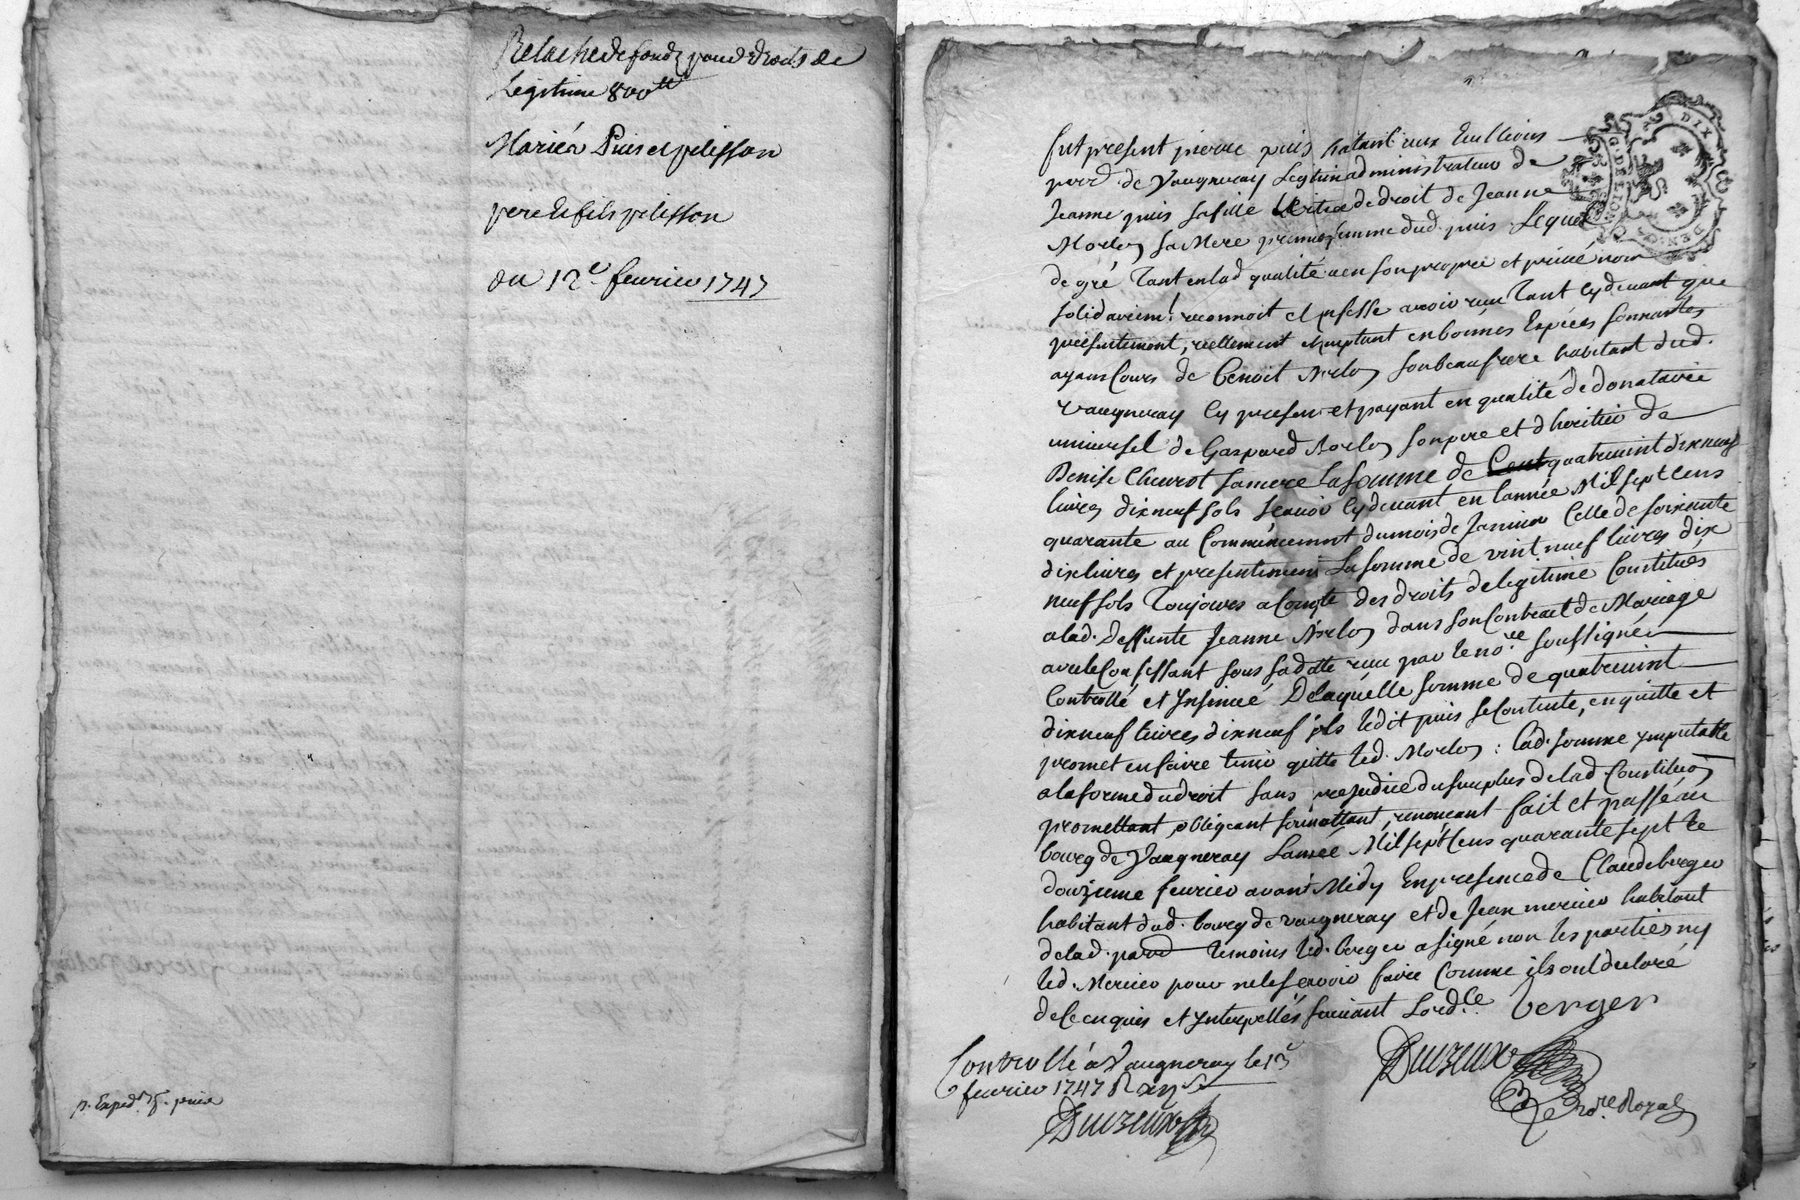 Relache de fondz pour droits de
Legitime 800tt
Mariés Puis et pelisson
pere et fils pelisson
du 12e fevrier 1747
p. Exped.
fut present pierre puis habitant aux
parr. de Vaugneray Legitime administrateur de
Jeanne puis sa fille de droit de Jeanne
Morlon sa Mere premiere femme dud. puis Lequel
de gré Tant en lad qualité qu'en son propre et privé nom
solidairemt. reconnoit et confesse avoir reçu Tant cy devant que
presentement, reellement comptant en bonnes Espéces sonnantes
ayans Cours de benoit Morlon son beaufrere habitant dud.
Vaugneray cy present et payant en qualité de donataire
universel de Gaspard Morlon son pere et d'heritier de
Denise Chuzot sa mere La somme de Cent quatrevint dixneuf
livres dixneuf sols scavoir cy devant en l'année Mil sept Cens
quarante au Commencement du mois de Janvier Celle de soixante
dix livres et presentement La somme de vint neuf livres dix
neuf sols Toujours a Compte des droits de legitime Constitués
a lad. Deffunte Jeanne Morlon dans son Contract de Mariage
avec le Confessant sous sa datte reçu par le nore. soussigné
Controllé et Insinué De laquelle somme de quatrevint
dixneuf livres dixneuf sols ledit puis se Contente, en quitte et
promet en faire tenir quitte led. Morlon : lad. somme ymputable
a la forme du droit sans prejudice du surplus de lad. Constituon
promettant, obligeant soumettant, renonceant fait et passé au
bourg de Vaugneray L'année Mil sept Cens quarante sept le
douzieme fevrier avant Midy En presence de Claude berger
habitant dud. bourg de vaugneray et de Jean mercier habitant
de lad. parr. Temoins led. berger a signé non les parties ny
led. Mercier pour ne le scavoir faire Comme ils ont declaré
de ce enquis et Interpellés suivant Lord.ce berger
Controllé a Vaugneray le 13
fevrier 1747 R
nore. Royal
G. DE LION
DIX DEN.